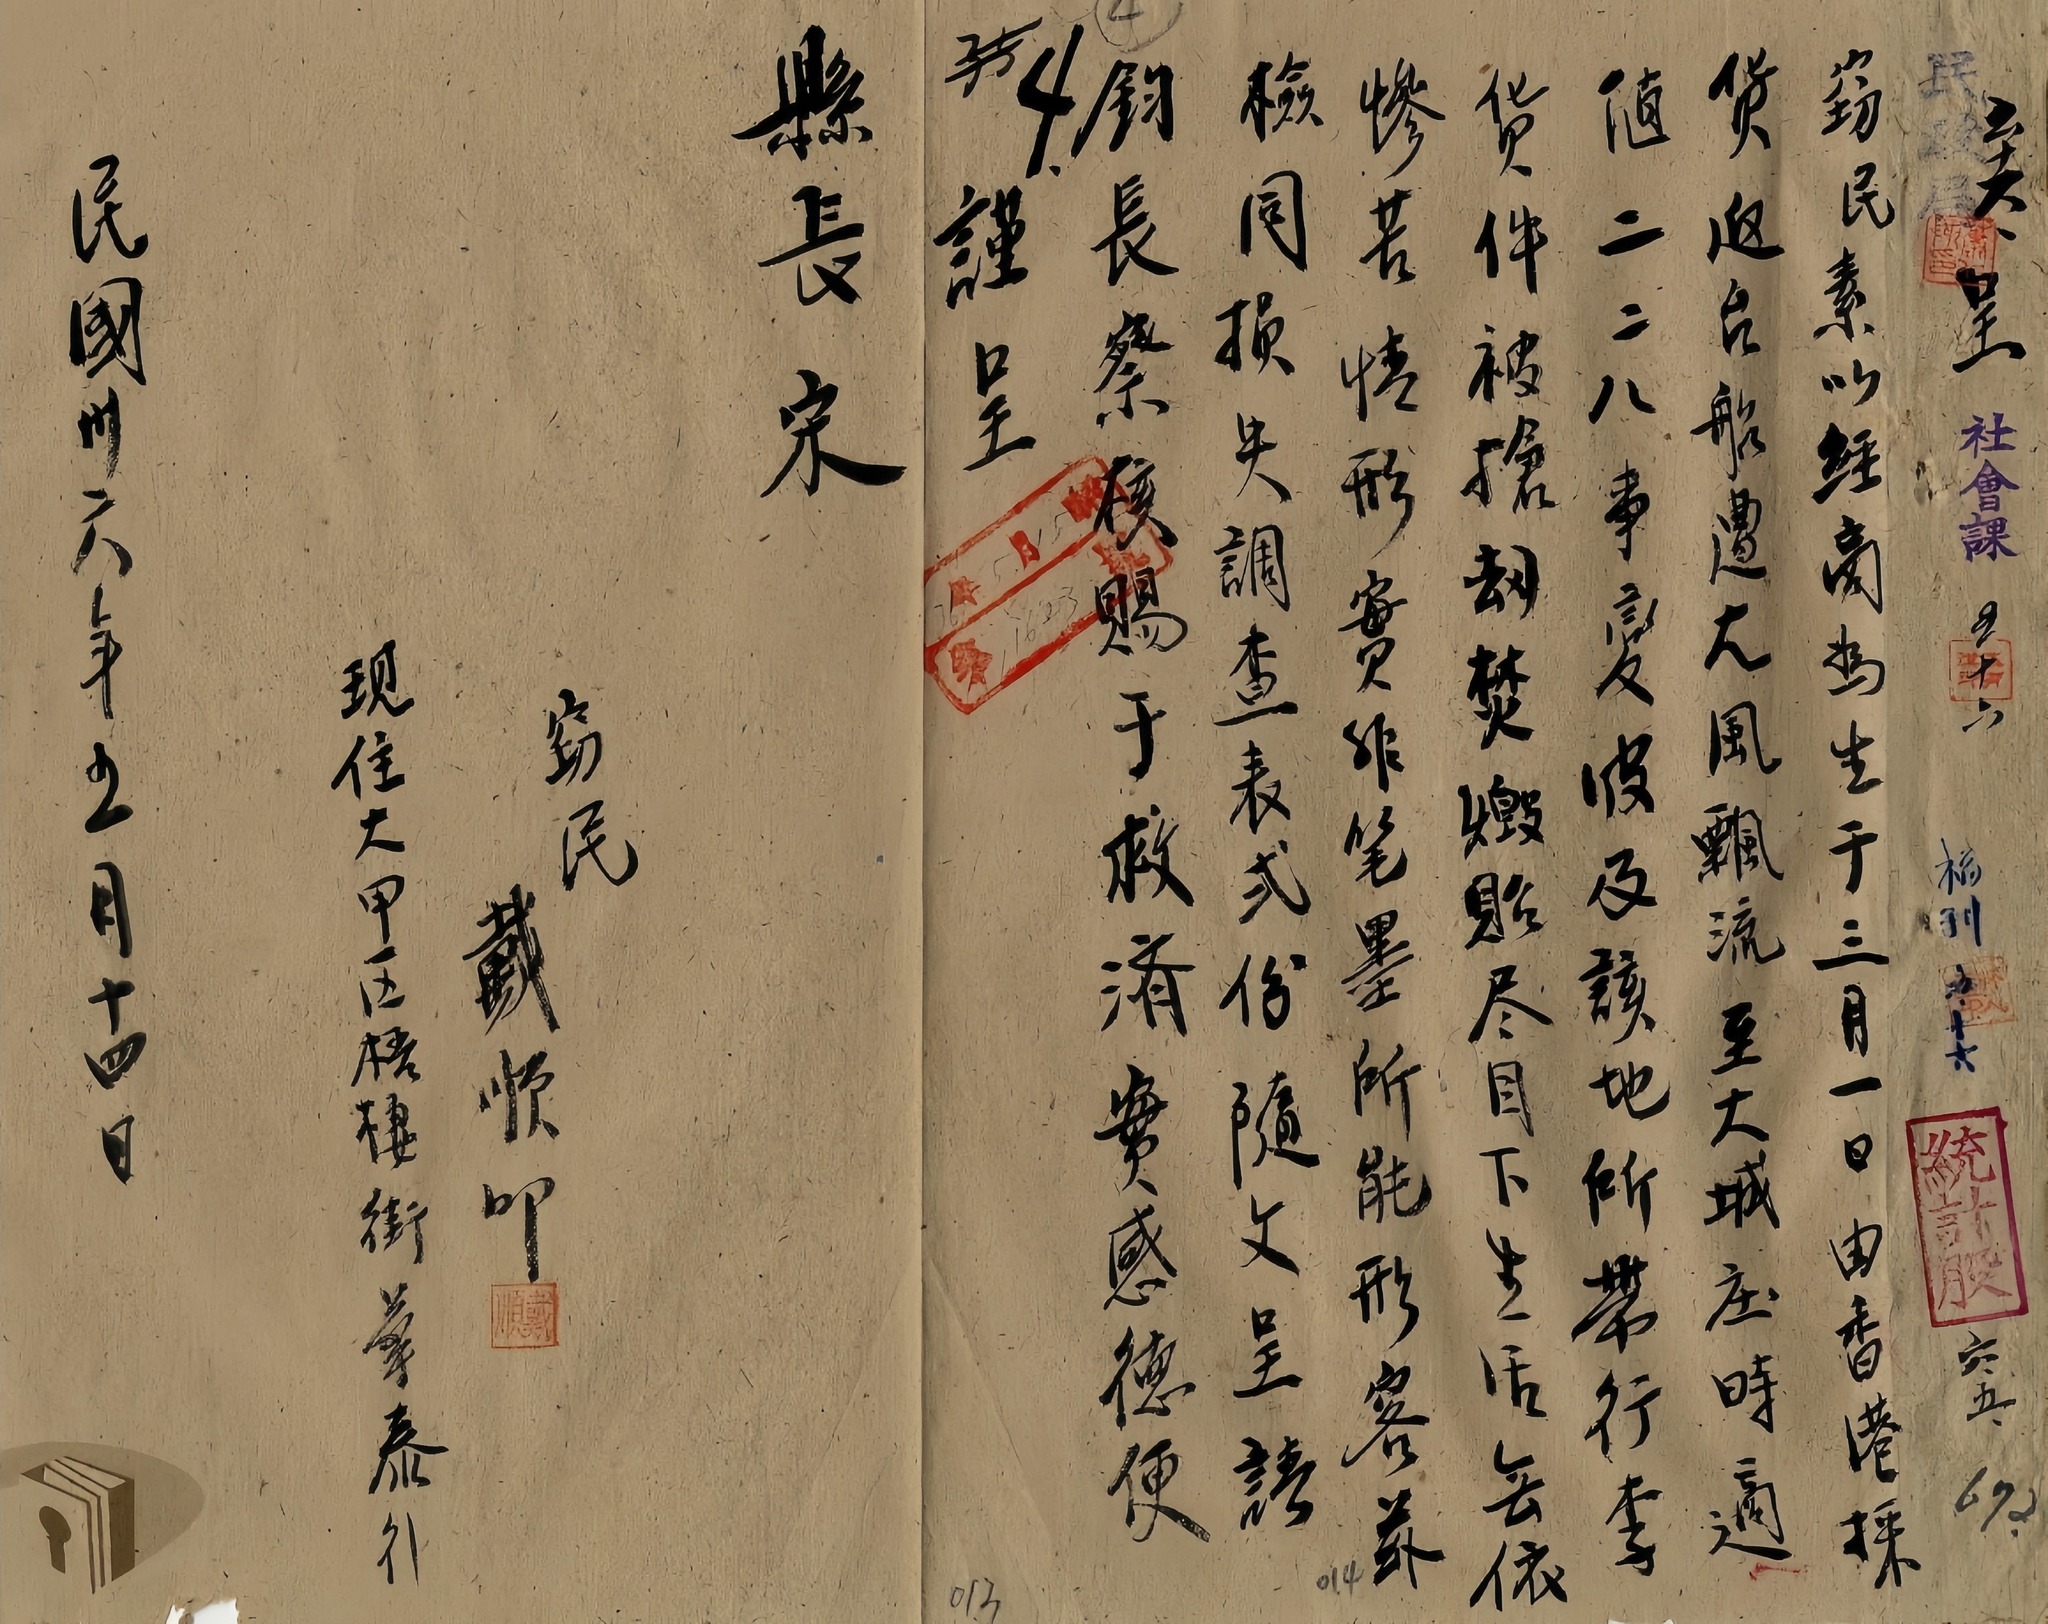 呈
窃民素以經商為生于三月一日由香港採
貨返台船遭大風飄流至大城庄時適
值二二八事變波及該地所帶行李
貨件被搶刼焚燬貽尽目下生活無依
慘苦情形實非笔墨所能形容茲
檢同損失調查表弍份隨文呈請
鈞長察核賜于救济實感德便
謹呈
縣長宋
窃民
戴順叩
現住大甲区梧棲街 泰行
民國卅六年五月十四日
民政局
社會課
五十六
統計股
六五
692
4
4.
月
5 15
1623
戴順
013
014